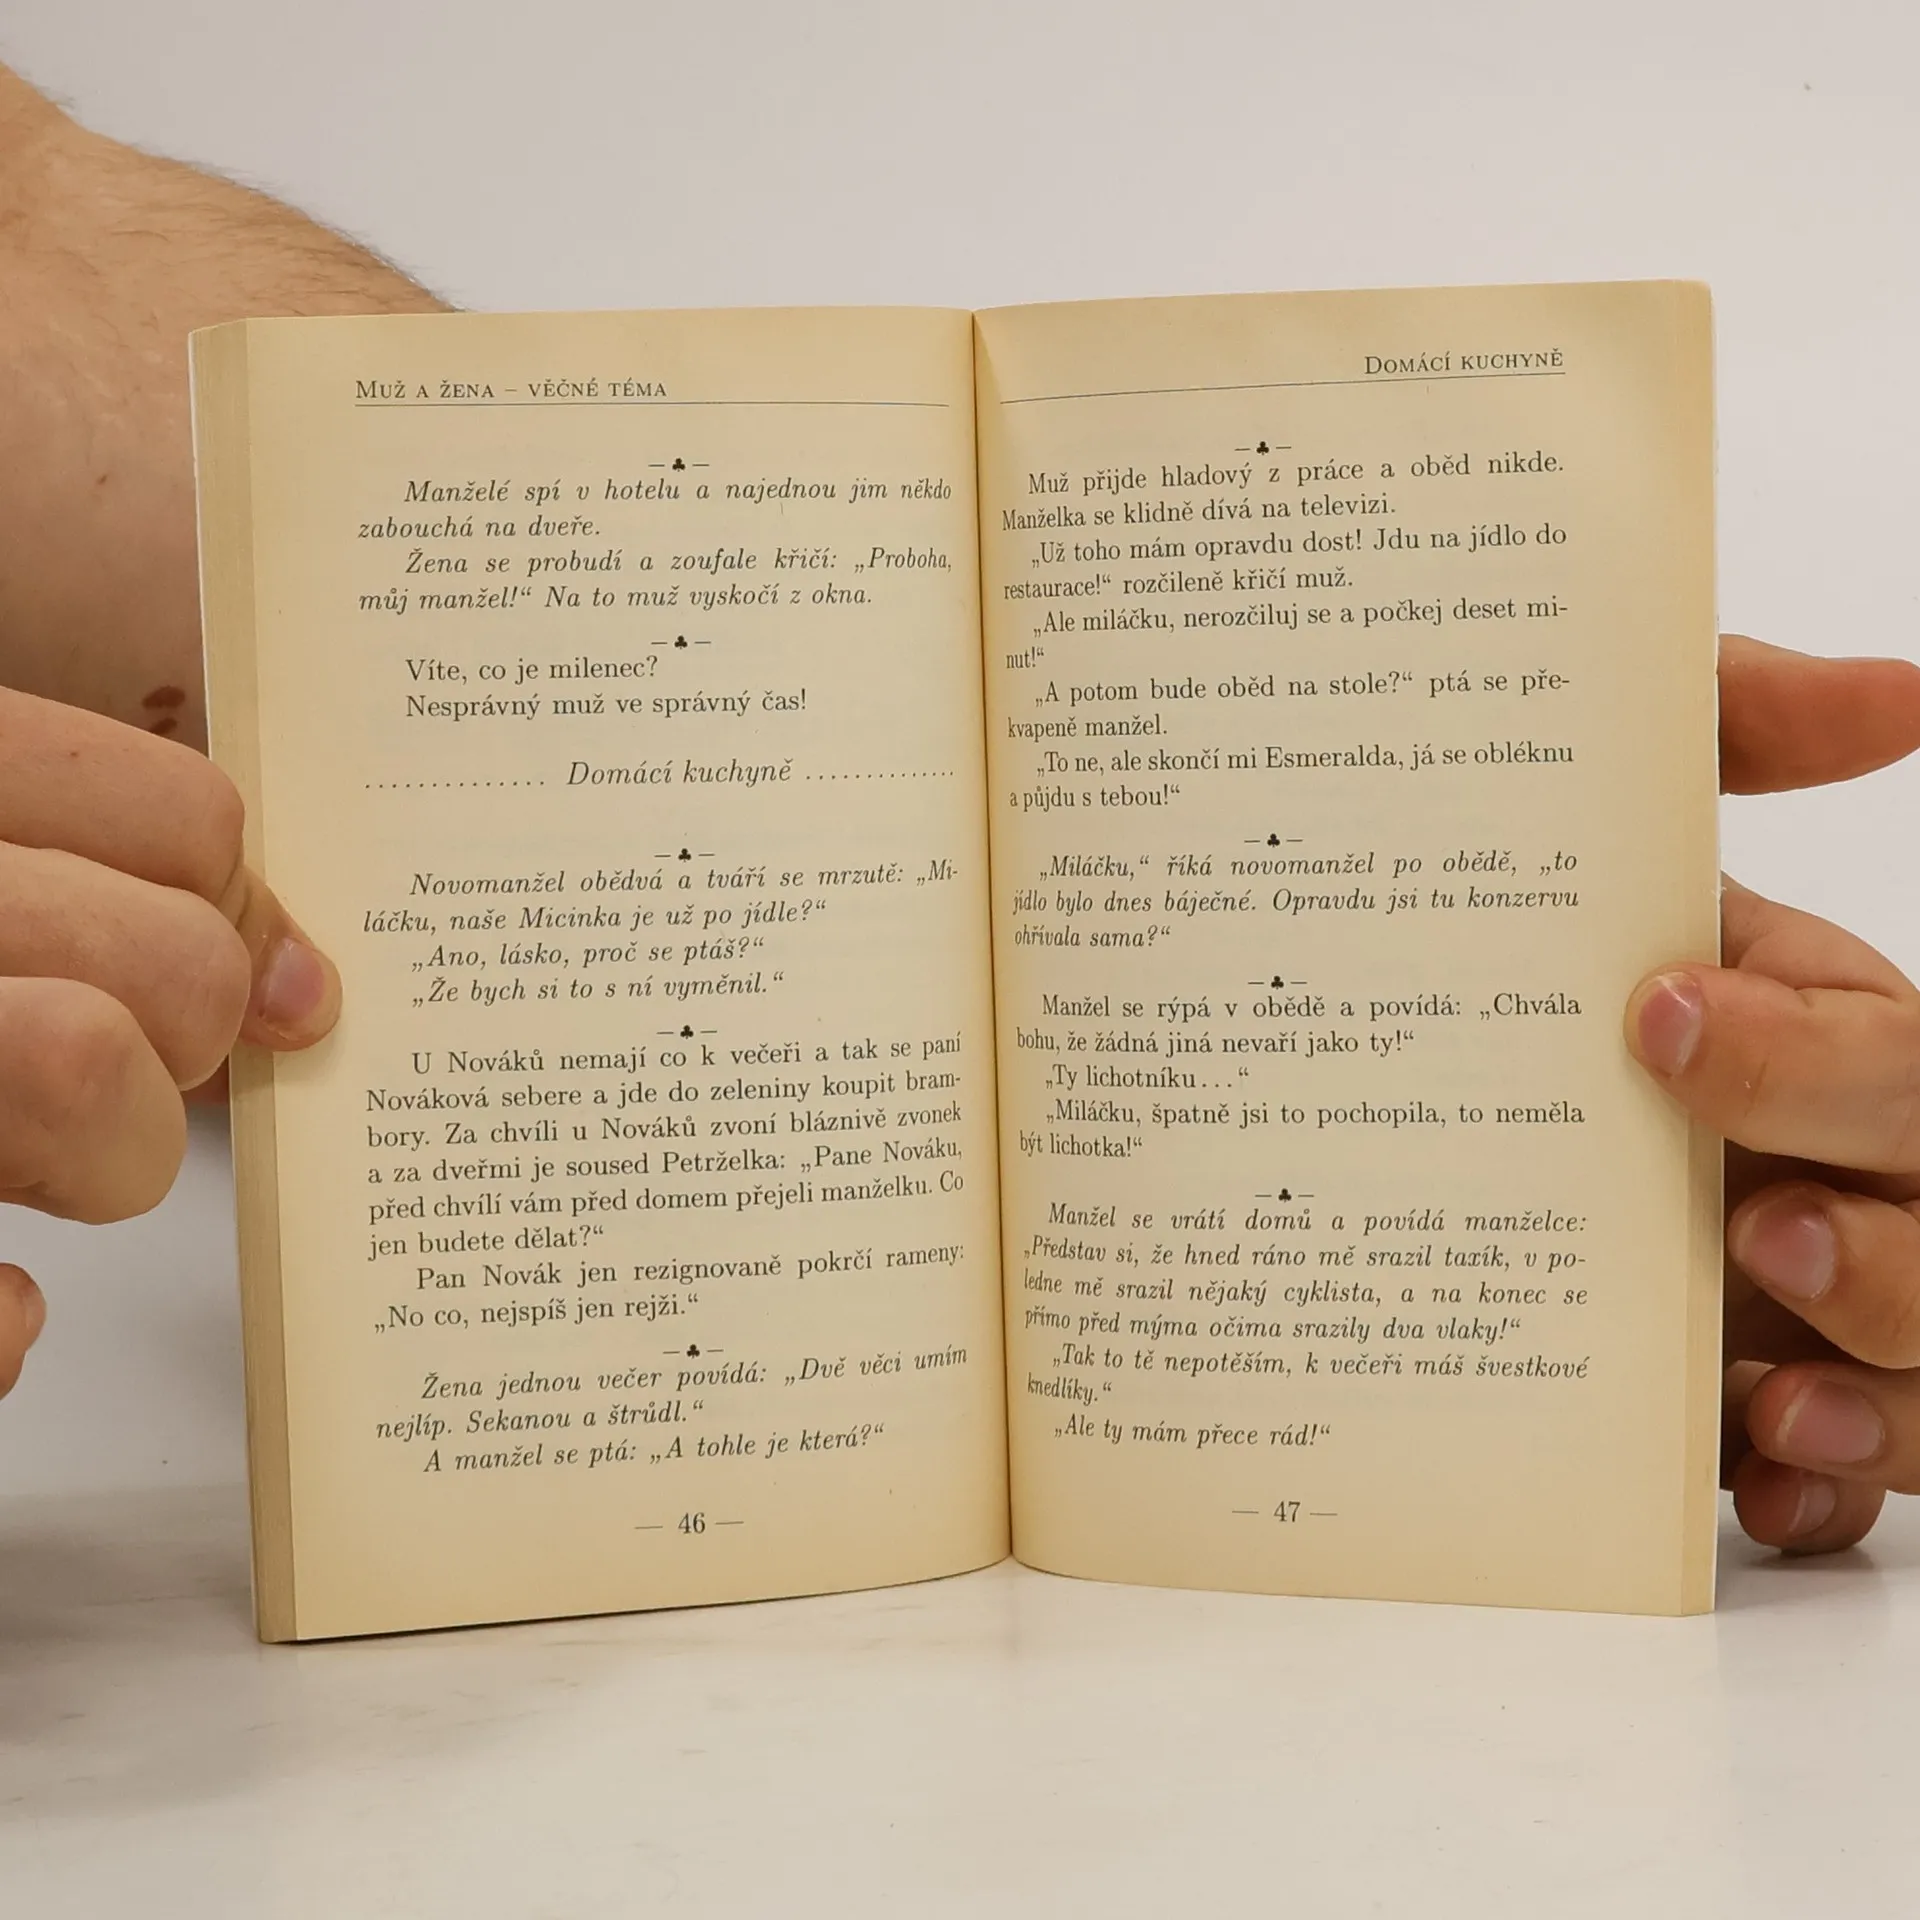 Muž a žena – věčné téma
— ♣ —
Manželé spí v hotelu a najednou jim někdo
zabouchá na dveře.
Žena se probudí a zoufale křičí: „Proboha,
můj manžel!“ Na to muž vyskočí z okna.
— ♣ —
Víte, co je milenec?
Nesprávný muž ve správný čas!
.............. Domácí kuchyně ..............
— ♣ —
Novomanžel obědvá a tváří se mrzutě: „Mi-
láčku, naše Micinka je už po jídle?“
„Ano, lásko, proč se ptáš?“
„Že bych si to s ní vyměnil.“
— ♣ —
U Nováků nemají co k večeři a tak se paní
Nováková sebere a jde do zeleniny koupit bram-
bory. Za chvíli u Nováků zvoní bláznivě zvonek
a za dveřmi je soused Petrželka: „Pane Nováku,
před chvílí vám před domem přejeli manželku. Co
jen budete dělat?“
Pan Novák jen rezignovaně pokrčí rameny:
„No co, nejspíš jen rejži.“
— ♣ —
Žena jednou večer povídá: „Dvě věci umím
nejlíp. Sekanou a štrůdl.“
A manžel se ptá: „A tohle je která?“
— 46 —
Domácí kuchyně
— ♣ —
Muž přijde hladový z práce a oběd nikde.
Manželka se klidně dívá na televizi.
„Už toho mám opravdu dost! Jdu na jídlo do
restaurace!“ rozčileně křičí muž.
„Ale miláčku, nerozčiluj se a počkej deset mi-
nut!“
„A potom bude oběd na stole?“ ptá se pře-
kvapeně manžel.
„To ne, ale skončí mi Esmeralda, já se obléknu
a půjdu s tebou!“
— ♣ —
„Miláčku,“ říká novomanžel po obědě, „to
jídlo bylo dnes báječné. Opravdu jsi tu konzervu
ohřívala sama?“
— ♣ —
Manžel se rýpá v obědě a povídá: „Chvála
bohu, že žádná jiná nevaří jako ty!“
„Ty lichotníku...“
„Miláčku, špatně jsi to pochopila, to neměla
být lichotka!“
— ♣ —
Manžel se vrátí domů a povídá manželce:
„Představ si, že hned ráno mě srazil taxík, v po-
ledne mě srazil nějaký cyklista, a na konec se
přímo před mýma očima srazily dva vlaky!“
„Tak to tě nepotěším, k večeři máš švestkové
knedlíky.“
„Ale ty mám přece rád!“
— 47 —